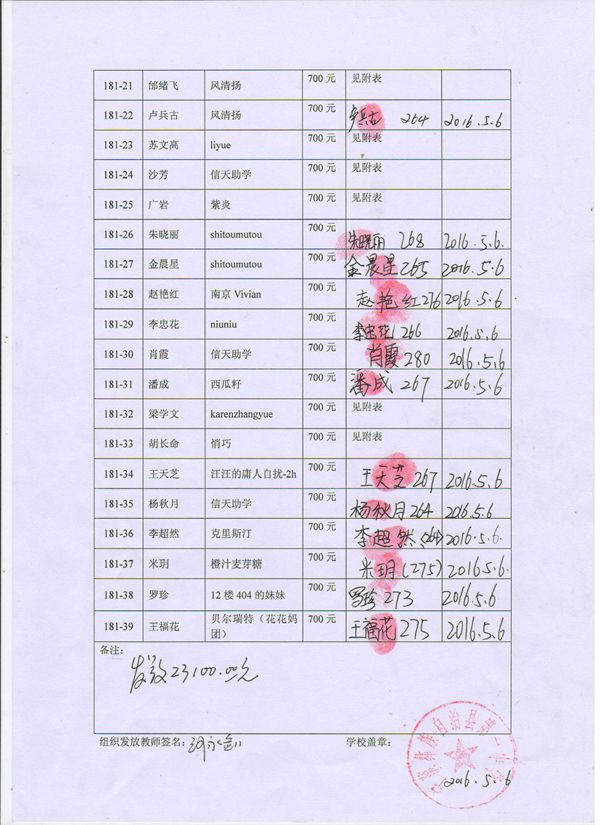 181-21 邰绪飞 风清扬 700 元 见附表
181-22 卢兵古 风清扬 700 元 卢兵古 264 2016.5.6
181-23 苏文高 liyue 700 元 见附表
181-24 沙芳 信天助学 700 元 见附表
181-25 广岩 紫炎 700 元 见附表
181-26 朱晓丽 shitoumutou 700 元 朱晓丽 268 2016.5.6.
181-27 金晨星 shitoumutou 700 元 金晨星 265 2016.5.6
181-28 赵艳红 南京 Vivian 700 元 赵艳红 276 2016.5.6
181-29 李忠花 niuniu 700 元 李忠花 266 2016.5.6
181-30 肖霞 信天助学 700 元 肖霞 280 2016.5.6
181-31 潘成 西瓜籽 700 元 潘成 267 2016.5.6
181-32 梁学文 karenzhangyue 700 元 见附表
181-33 胡长命 悄巧 700 元 见附表
181-34 王天芝 汪汪的庸人自扰-2h 700 元 王天芝 267 2016.5.6
181-35 杨秋月 信天助学 700 元 杨秋月 264 2016.5.6
181-36 李超然 克里斯汀 700 元 李超然 (264) 2016.5.6.
181-37 米玥 橙汁麦芽糖 700 元 米玥 (275) 2016.5.6.
181-38 罗珍 12 楼 404 的妹妹 700 元 罗珍 273 2016.5.6
181-39 王福花 贝尔瑞特（花花妈 700 元 王福花 275 2016.5.6
团）
备注：
发放23100.00元
组织发放教师签名： 学校盖章：
族自治县第一中学
2016.5.6